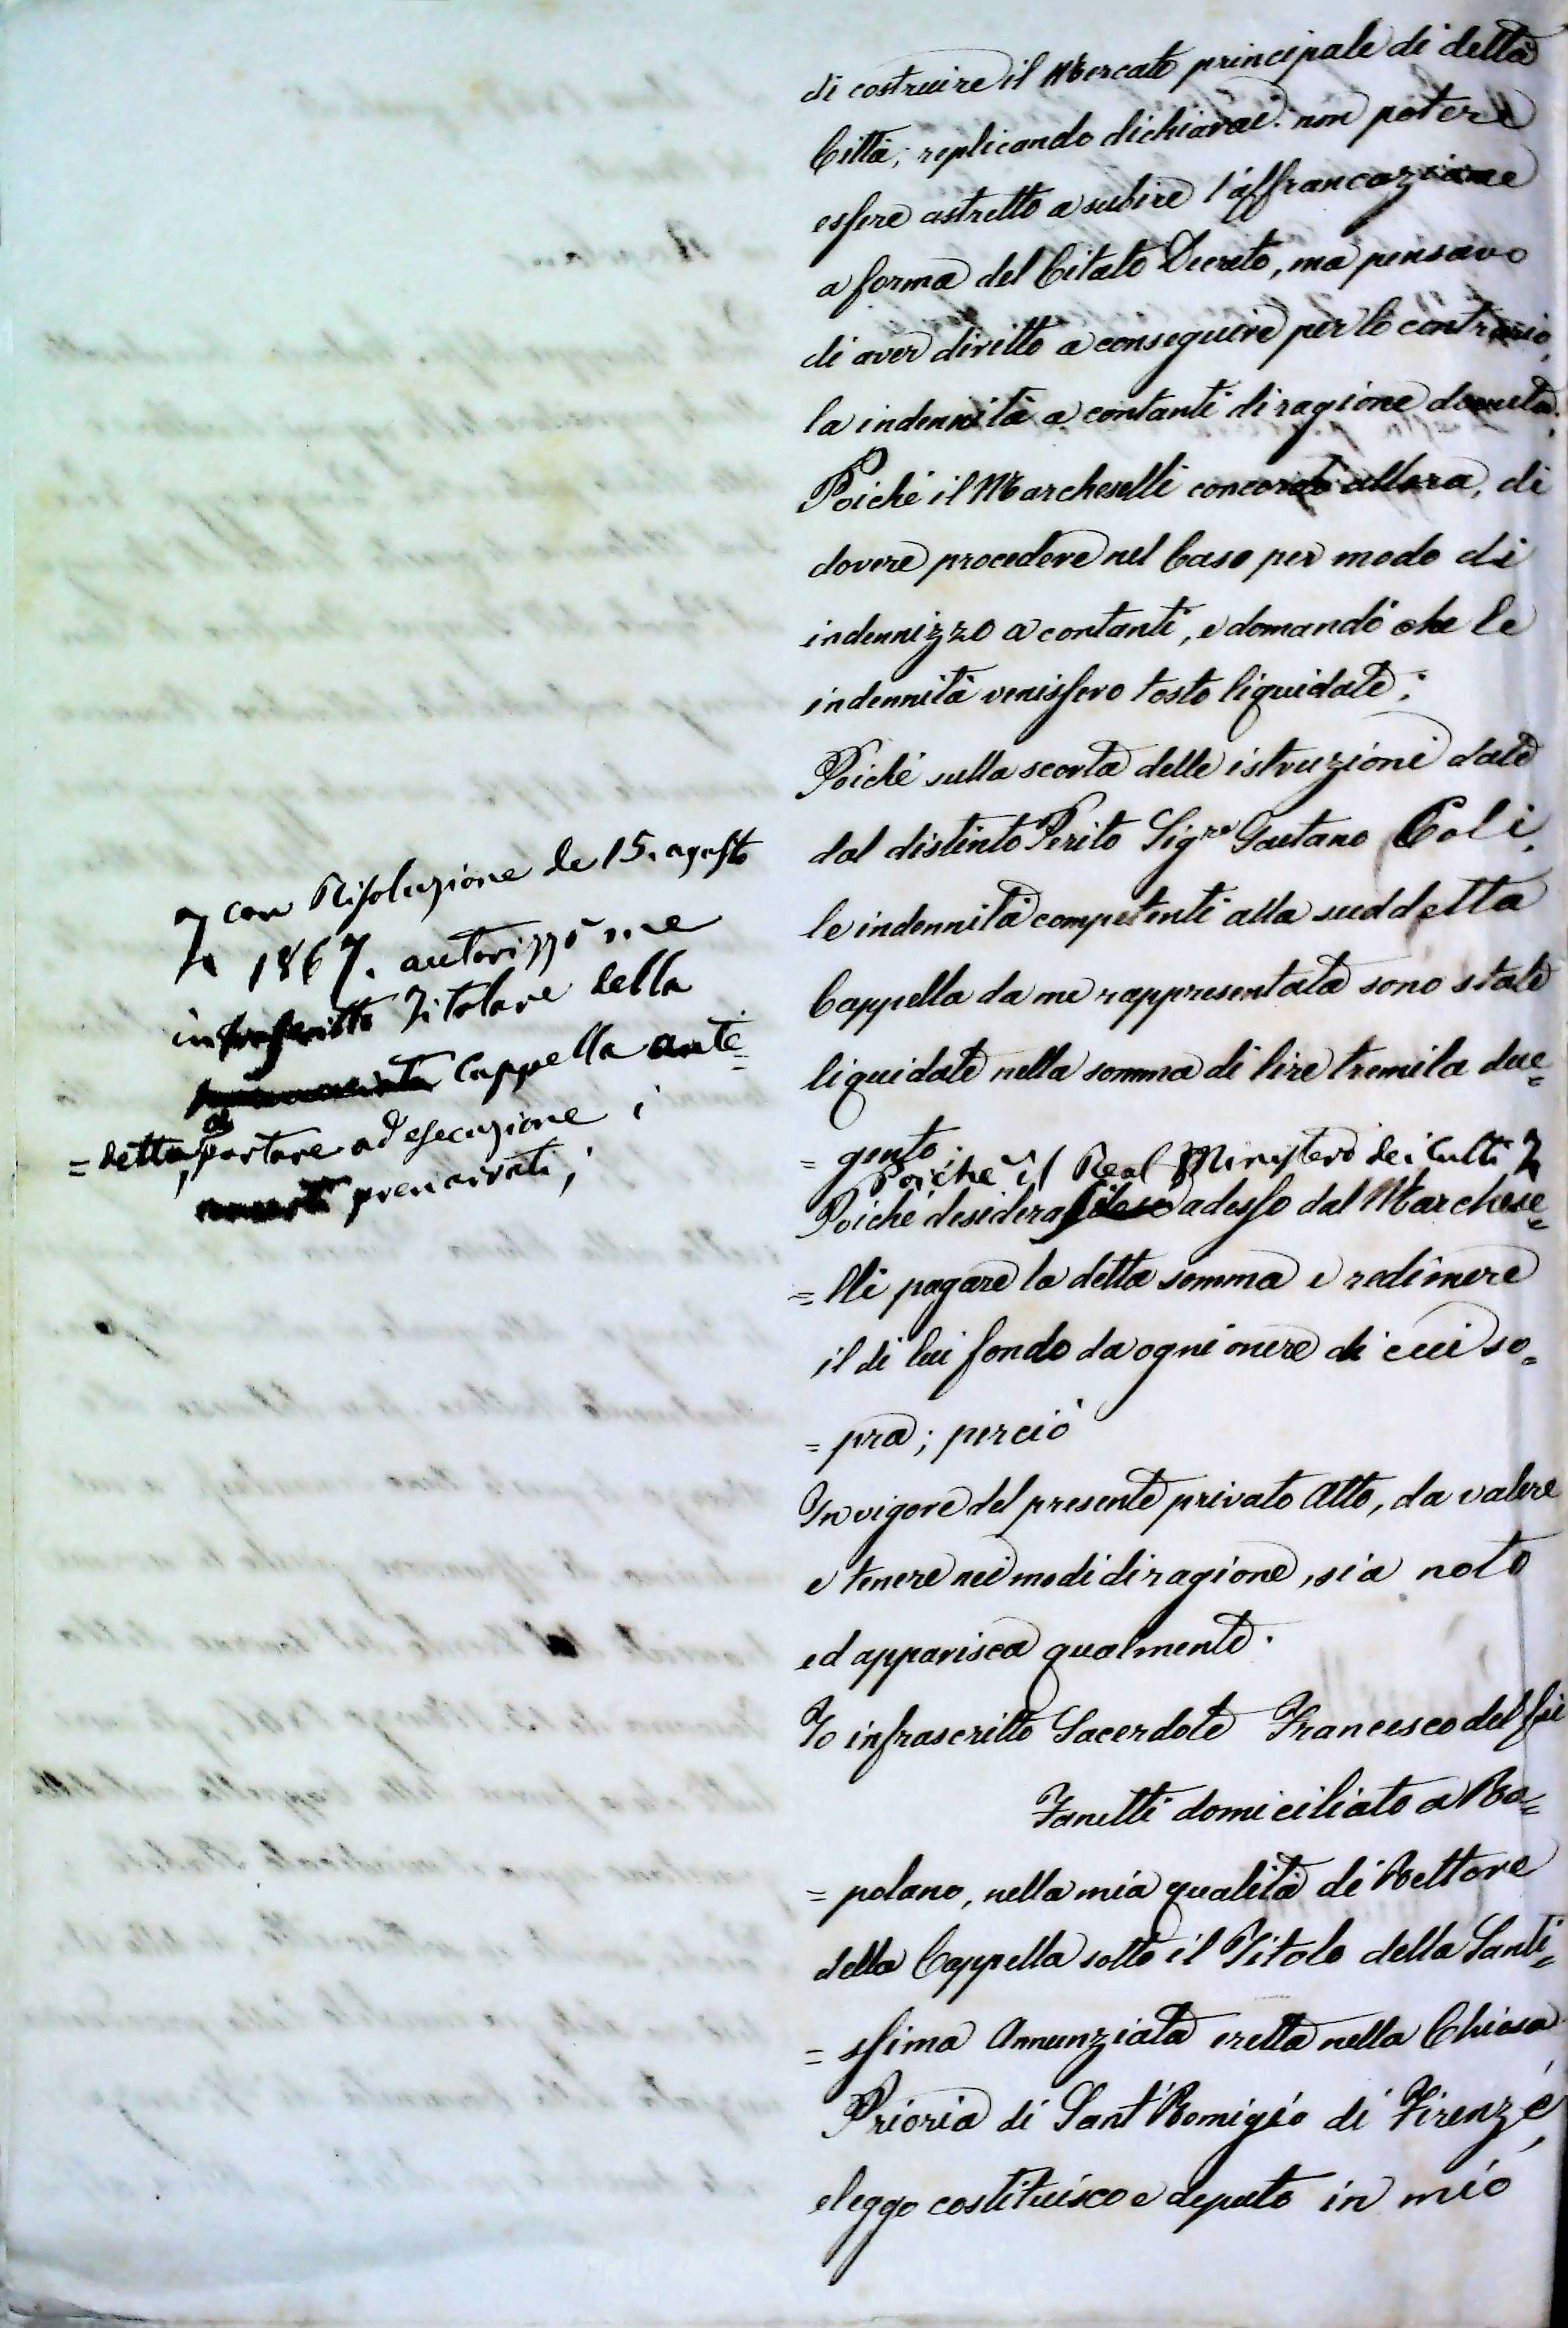 di costruire il Mercato principale di detta
Città; replicando dichiarai non potere
essere astretto a subire l'affrancazione
a forma del Citato Decreto, ma pensavo
di aver diritto a conseguire per lo contrario,
la indennità a contanti di ragione dovuta.
Poichè il Marcheselli concordò allora, di
dovere procedere nel Caso per modo di
indennizzo a contanti, e domandò che le
indennità venissero tosto liquidate;
Poichè sulla scorta delle istruzioni date
dal distinto Perito Sigre Gaetano Coli,
le indennità competenti alla suddetta
Cappella da me rappresentata sono state
liquidate nella somma di lire tremila due=
=gento
Poichè il Real Ministero dei Culti
con Risoluzione de 15. agosto
1867. autorizzò me
infrascritto Titolare della
Cappella ante=
=detta, a portare ad esecuzione i
prenarrati;
Poichè desiderasi adesso dal Marchese=
=lli pagare la detta somma e redimere
il di lui fondo da ogni onere di cui so=
=pra; perciò
In vigore del presente privato Atto, da valere
e tenere nei modi di ragione, sia noto
ed apparisca qualmente.
Io infrascritto Sacerdote Francesco del fù
Zanetti domiciliato a Ra=
=polano, nella mia qualità di Rettore
della Cappella sotto il Titolo della Santi=
=ssima Annunziata eretta nella Chiesa
Prioria di Sant'Romigio di Firenze,
eleggo costituisco e deputo in mio